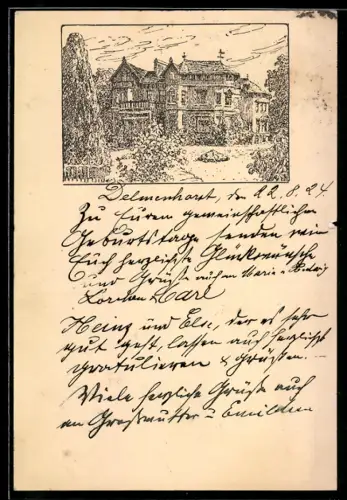 Delmenhorst, den 22.8.24.
Zu Eurem gemeinschaftlichen
Geburtstage senden wir
Euch herzlichste Glückwünsche
und Grüße auch an Marie
Lorchen & Carl
Heinz und Else, der es sehr
gut geht, lassen auch herzlichst
gratulieren & grüßen.
Viele herzliche Grüße auch
an Großmutter u Emilchen